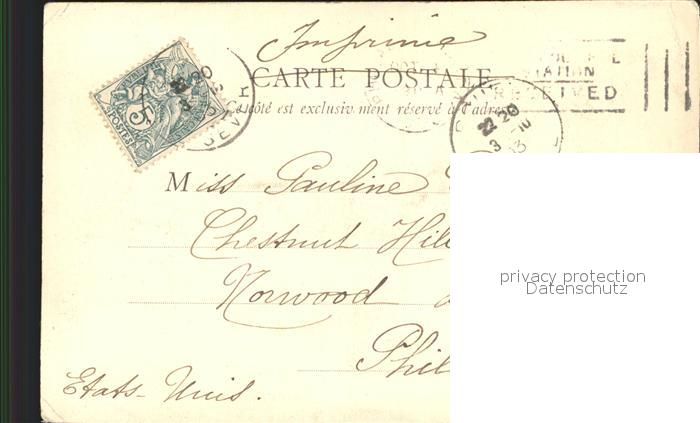 Imprimé
CARTE POSTALE
Ce côté est exclusivement réservé à l'adresse
STATION
RECEIVED
5c
POSTES
20
3
20
3 -10
03
Miss Pauline
Chestnut Hil
Norwood
Phil
Etats-Unis.
privacy protection
Datenschutz